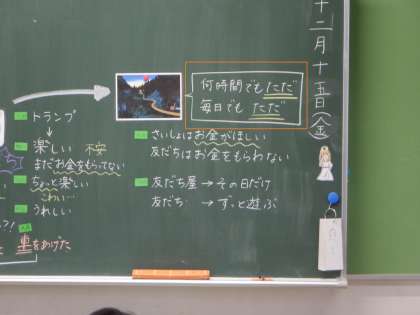 十二月十五日(金)
何時間でもただ
毎日でもただ
さいしょはお金がほしい
友だちはお金をもらわない
友だち屋→その日だけ
友だち→ずっと遊ぶ
トランプ
↓
楽しい 不安
まだお金をもらってない
ちょっと楽しい
こわい…
うれしい
車をあげた